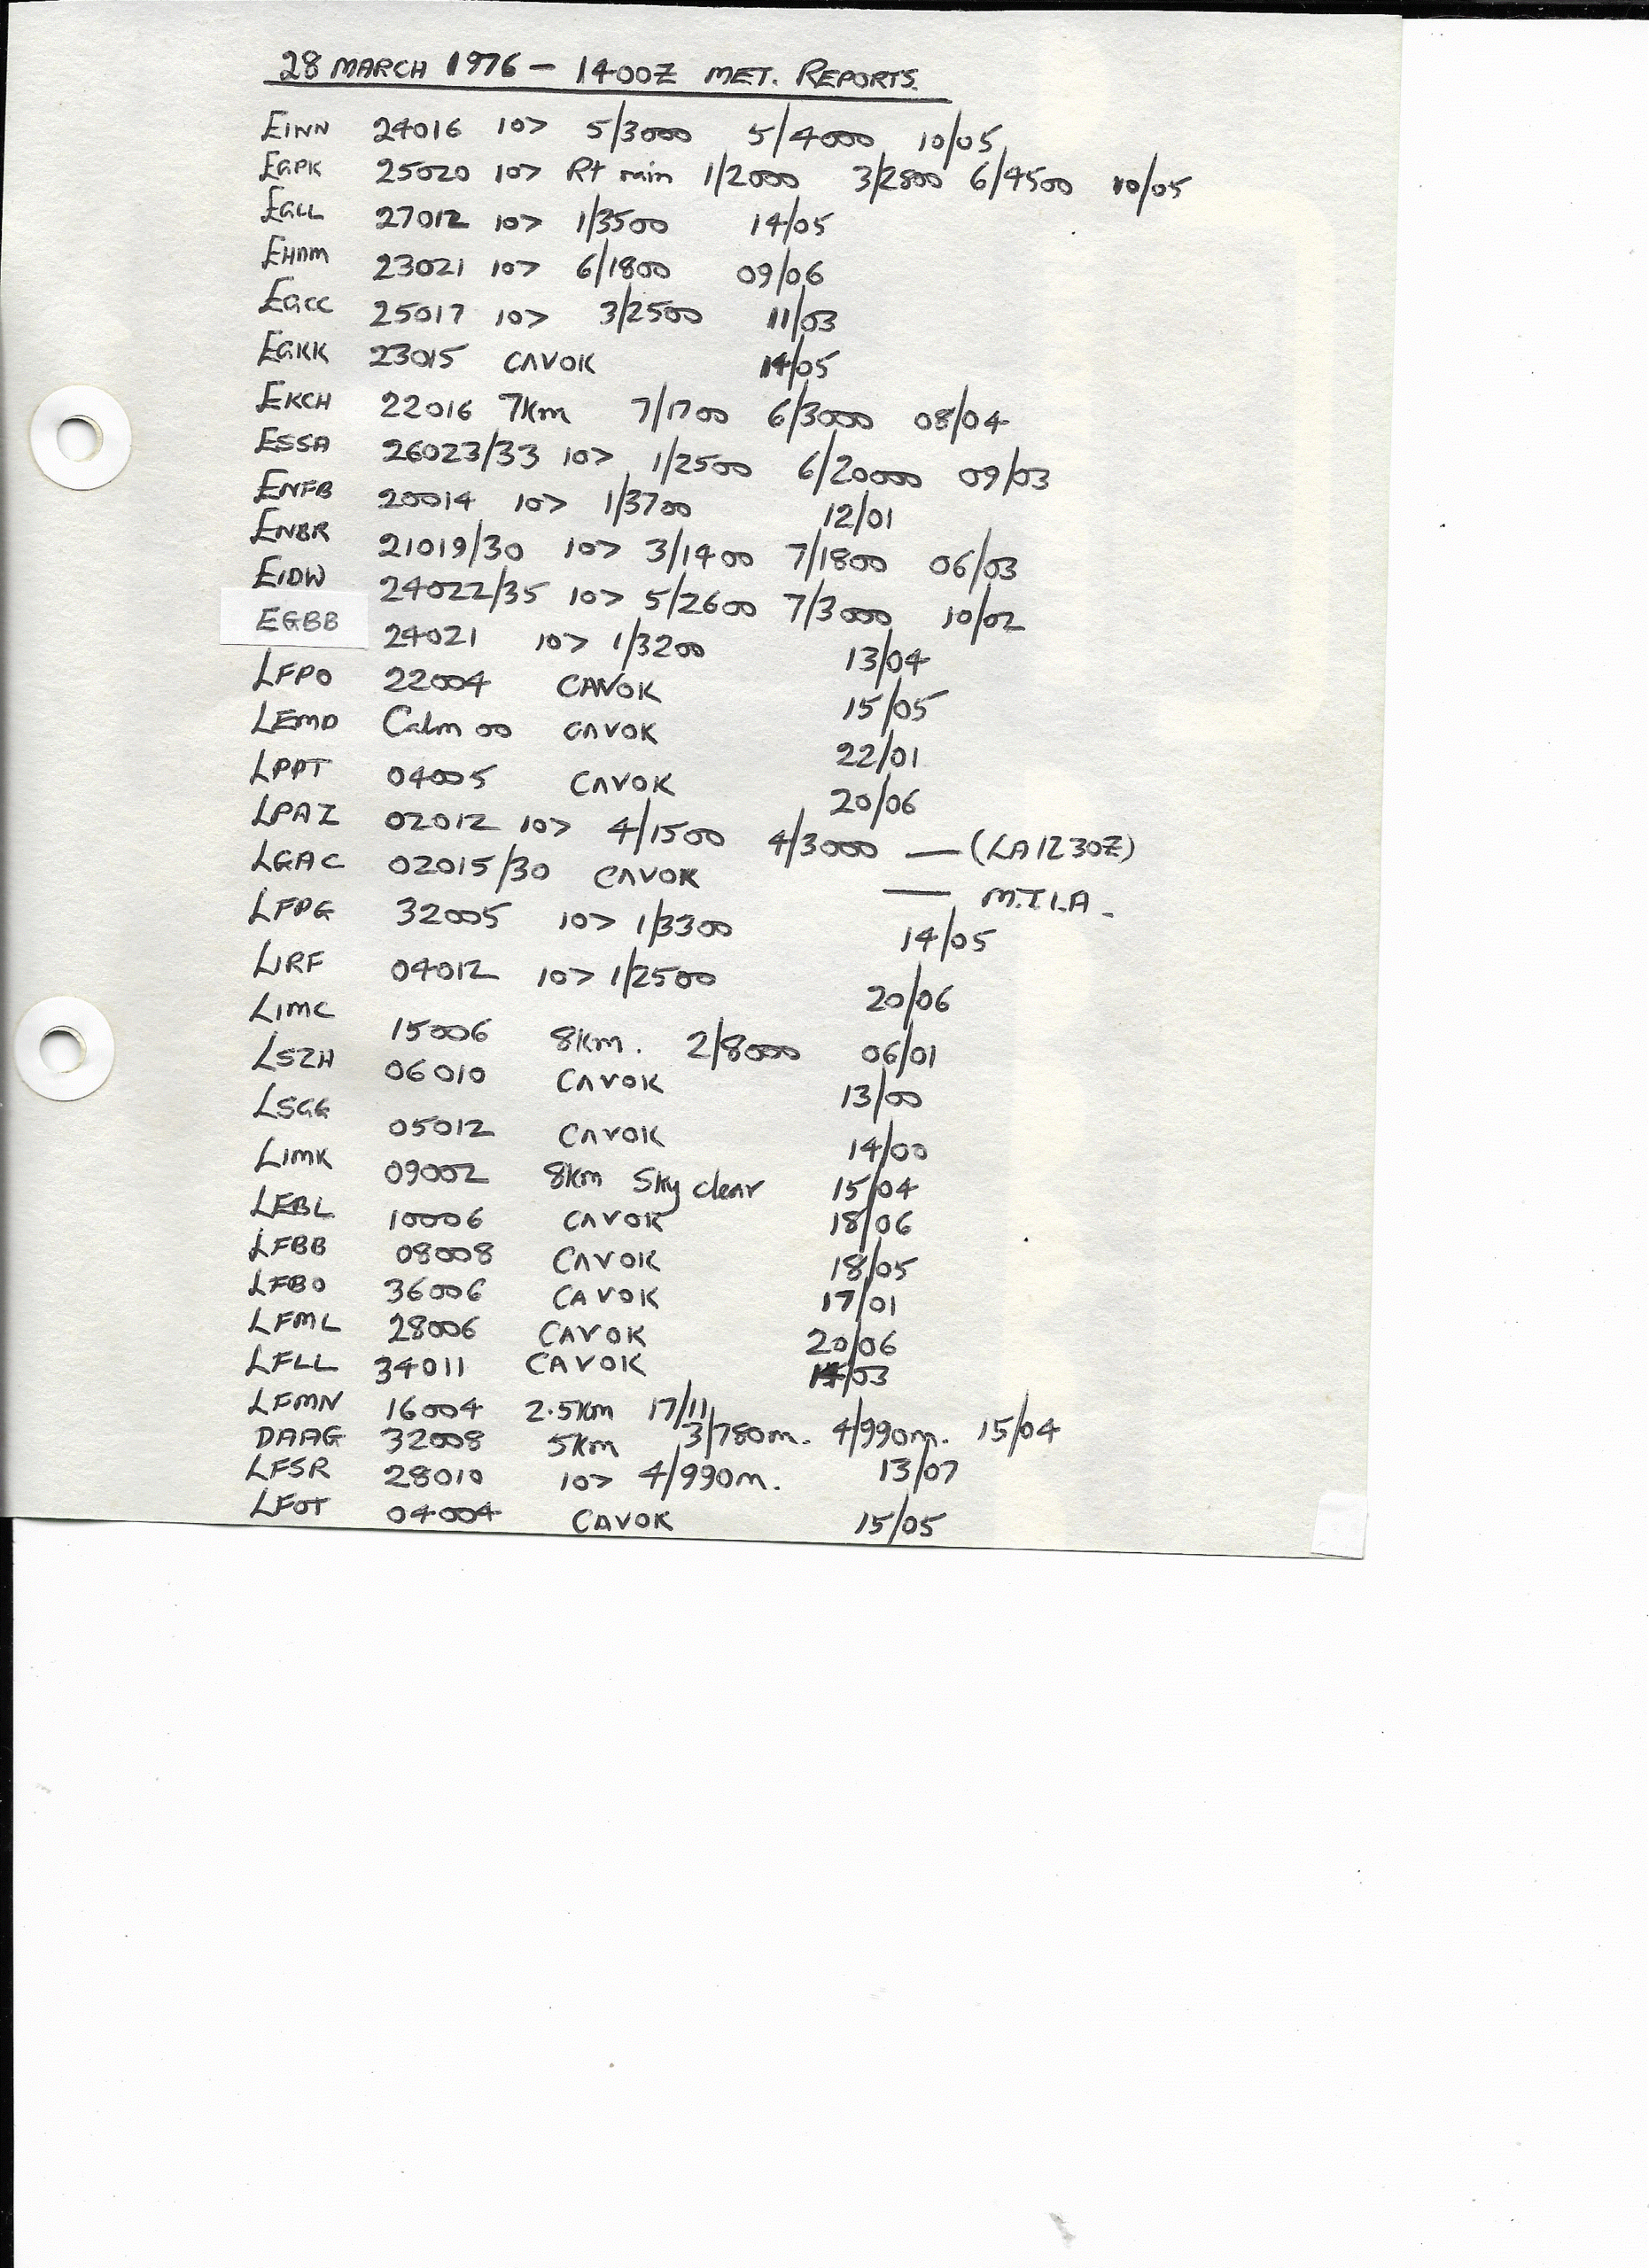 28 MARCH 1976 - 1400Z MET. REPORTS.
EINN 24016 10> 5/3000 5/4000 10/05
EGPK 25020 10> Rt min 1/2000 3/2800 6/4500 10/05
EGLL 27012 10> 1/3500 14/05
EHAM 23021 10> 6/1800 09/06
EGCC 25017 10> 3/2500 11/03
EGKK 23015 CAVOK 14/05
EKCH 22016 7km 7/1700 6/3000 08/04
ESSA 26023/33 10> 1/2500 6/20000 09/03
ENFB 20014 10> 1/3700 12/01
ENBR 21019/30 10> 3/1400 7/1800 06/03
EIDW 24022/35 10> 5/2600 7/3000 10/02
EGBB 24021 10> 1/3200 13/04
LFPO 22004 CAVOK 15/05
LEMD Calm 00 CAVOK 22/01
LPPT 04005 CAVOK 20/06
LPAZ 02012 10> 4/1500 4/3000 — (LA1230Z)
LGAC 02015/30 CAVOK — M.T.I.A.
LFPG 32005 10> 1/3300 14/05
LIRF 04012 10> 1/2500 20/06
LIMC 15006 8km. 2/8000 06/01
LSZH 06010 CAVOK 13/00
LSGG 05012 CAVOK 14/00
LIMK 09002 8km Sky clear 15/04
LEBL 10006 CAVOK 18/06
LFBB 08008 CAVOK 18/05
LFBO 36006 CAVOK 17/01
LFML 28006 CAVOK 20/06
LFLL 34011 CAVOK /03
LFMN 16004 2.5km 17/11
DAAG 32008 5km 3/780m. 4/990m. 15/04
LFSR 28010 10> 4/990m. 13/07
LFOT 04004 CAVOK 15/05